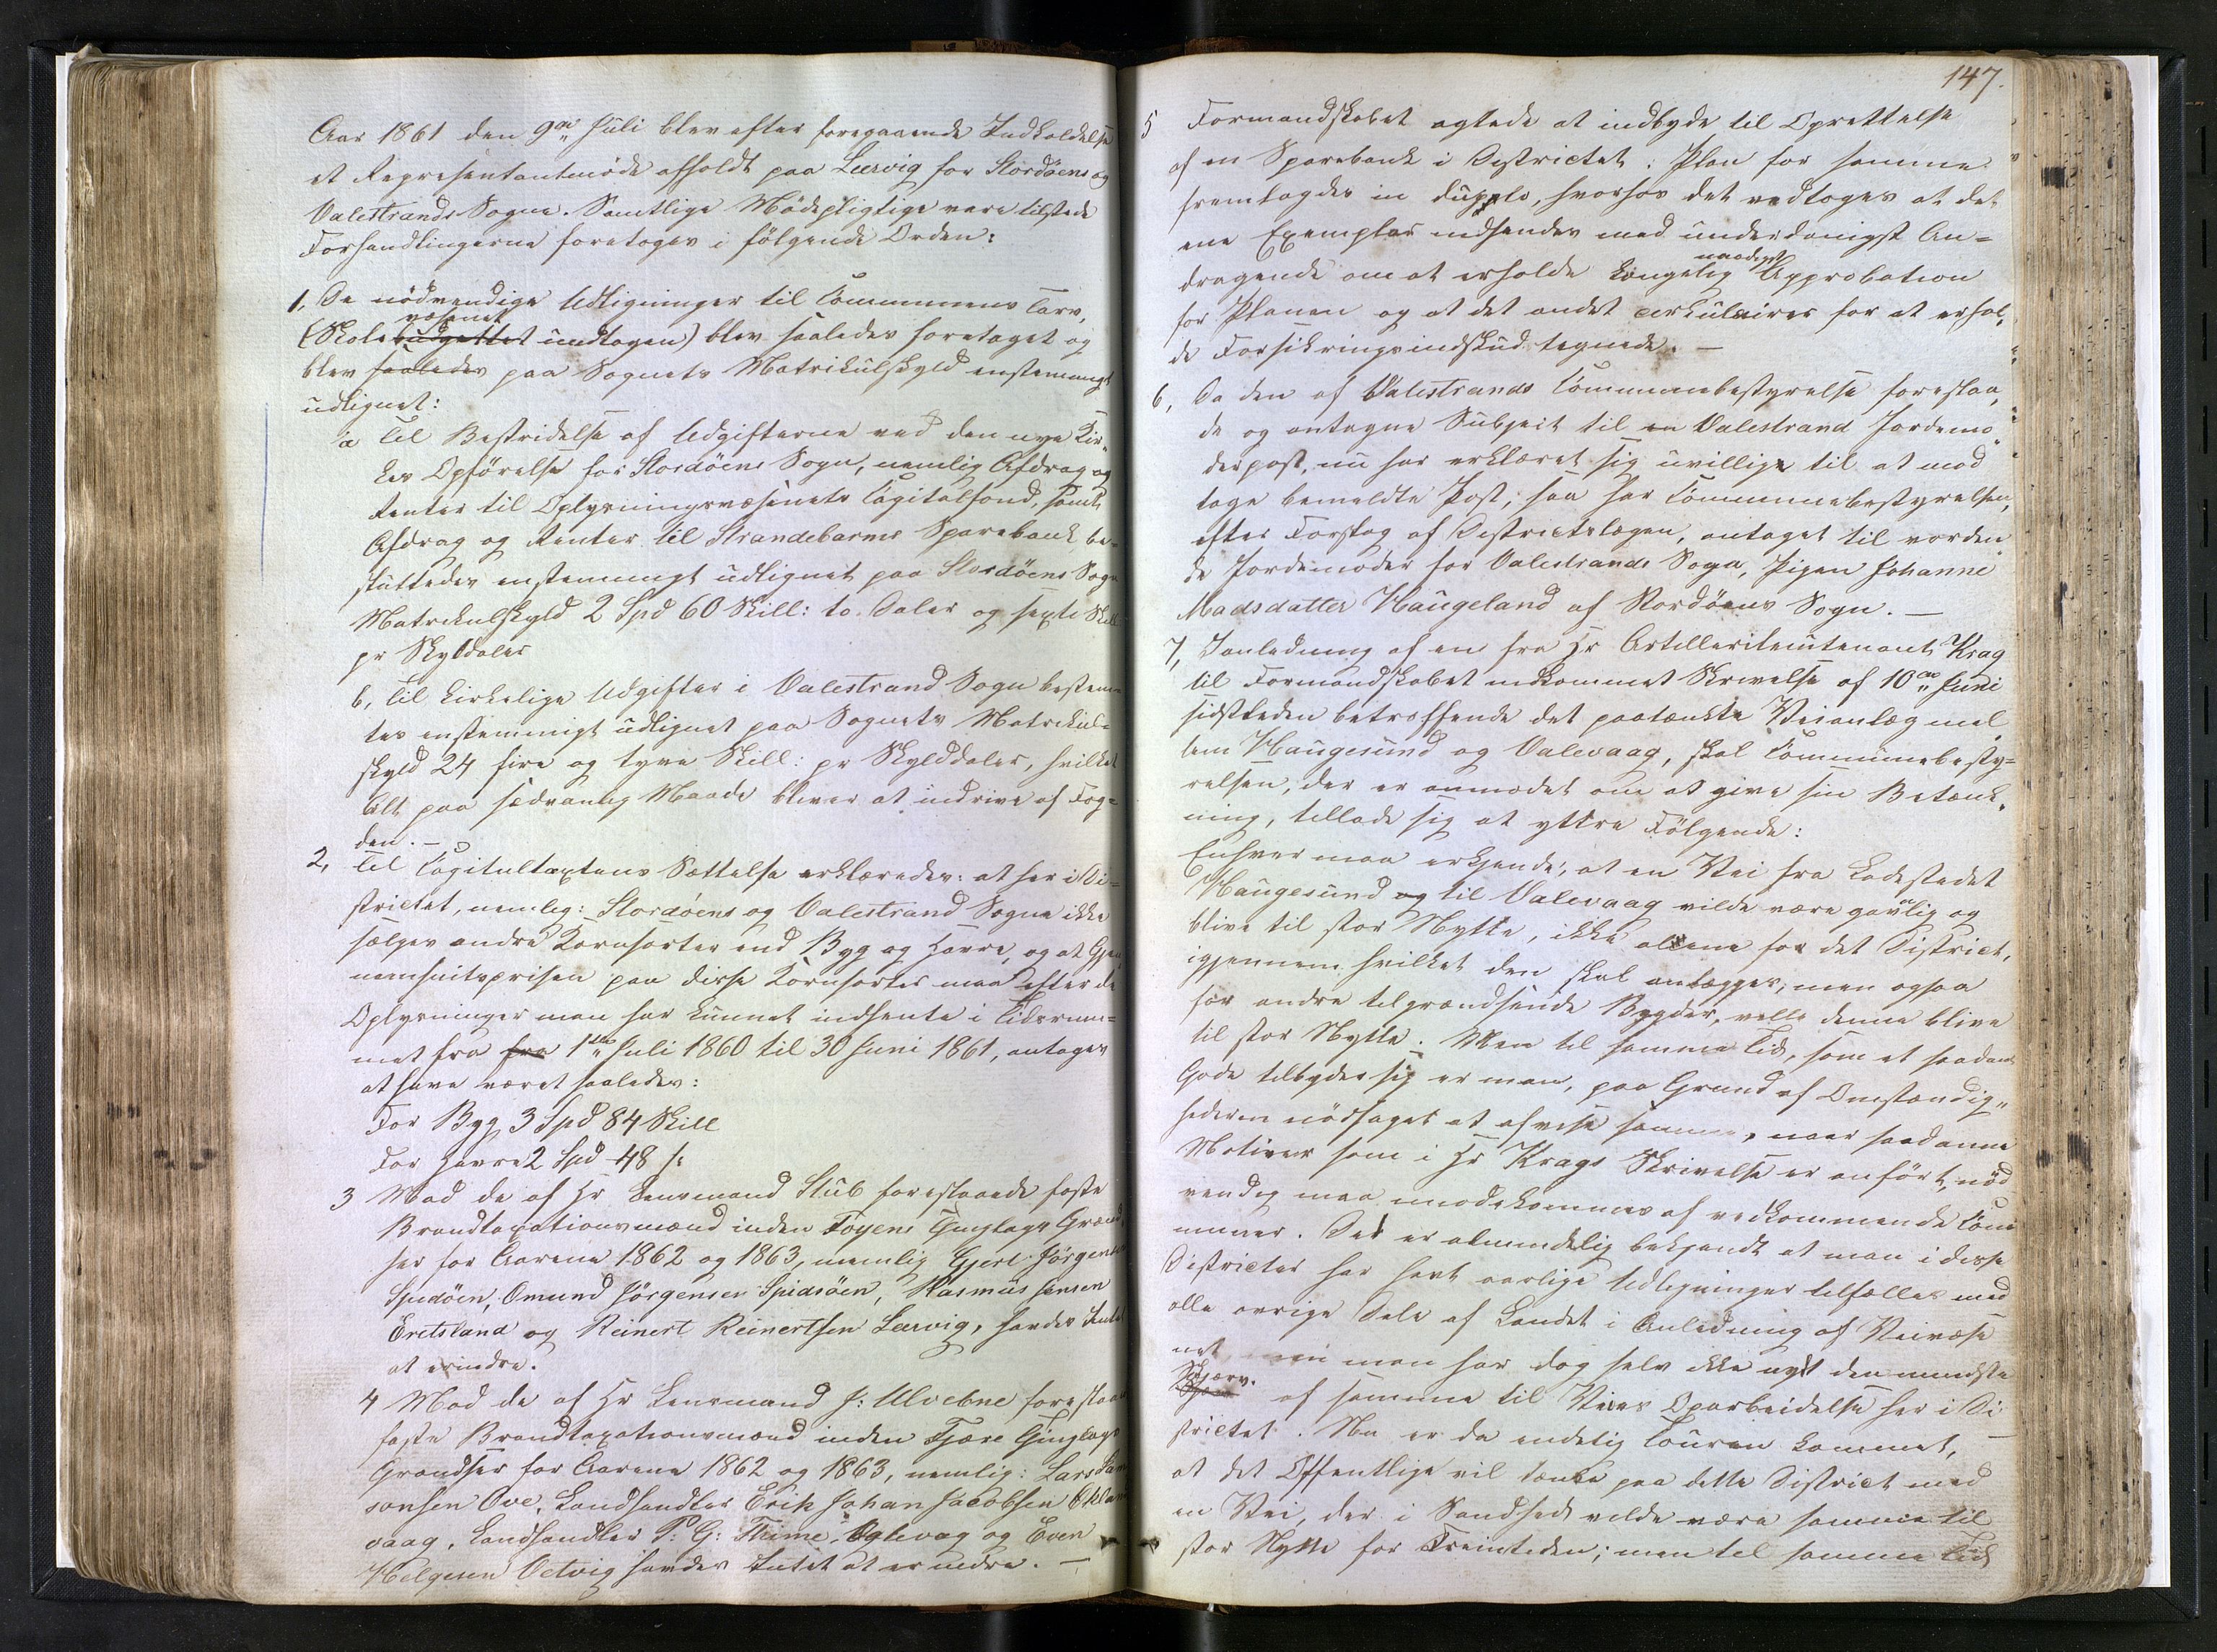 Aar 1861 den 9de Juli blev efter foregaaende Indkaldelse
et Repræsentantmøde afholdt paa Leervig for Stordøens og
Valestrands Sogne. Samtlige Mødepligtige vare tilstede
Forhandlingerne foretoges i følgende Orden:
1, De nødvendige Udligninger til Communens Tarv,
væsenet
(Skolebudgettet undtagen) blev saaledes foretaget og
blev saaledes paa Sognets Matrikulskyld enstemmigt
udlignet:
a Til Bestridelse af Udgifterne ved den nye Kir„
kes Opførelse for Stordøens Sogn, nemlig Afdrag og
Renter til Oplysningsvæsenets Capitalfond, samt
Afdrag og Renter til Strandebarms Sparebank, be-
sluttedes enstemmigt udlignet paa Stordøens Sogns
Matrikulskyld 2 Spd 60 Skill: to Daler og sexti Skill
pr Skylddaler
b, Til kirkelige Udgifter i Valestrand Sogn bestem-
tes enstemmigt udlignet paa Sognets Matrikul-
skyld 24 fire og tyve Skill: pr Skylddaler, hvilket
Alt paa sædvanlig Maade bliver at inddrive af Fog-
den. —
2, Til Capitultaxtens Sættelse erklæredes: at her i Di-
strictet, nemlig: Stordøens og Valestrand Sogne ikke
sælges andre Kornsorter end Byg og Havre, og at Gjen„
nemsnitsprisen paa disse Kornsorter maa efter de
Oplysninger man har kunnet indhente i Tidsrum-
met fra fra 1ste Juli 1860 til 30 Juni 1861, antages
at have været saaledes:
For Byg 3 Spd 84 Skill
For Havre 2 Spd 48 s:
3 Mod de af Hr Lensmand Stub foreslaaede faste
Brandtaxationsmænd inden Føyens Thinglags Grænd„
ser for Aarene 1862 og 1863, nemlig Gjert Jørgensen
Spidsøen, Omund Jørgensen Spidsøen, Rasmus Jensen
Eretsland og Reinert Reinertsen Leervig, havdes Intet
at erindre.
4 Mod de af Hr Lensmand J: Ulvebne foreslaaede
faste Brandtaxationsmænd inden Fjære Thinglags
Grændser for Aarene 1862 og 1863, nemlig: Lars Lar
sønsen Ove, Landhandler Erik Johan Jacobsen Eklands
vaag, Landhandler P: G: Thime,Øglevag og Even
Helgesen Vetvig havdes Intet at erindre. —
147.
5 Formandskabet agtede at indbyde til Oprettelse
af en Sparebank i Districtet: Plan for samme
fremlagdes in dupplo, hvorhos det vedtoges at det
ene Exemplar indsendes med underdanigst An-
naadigst
dragende om at erholde Kongelig Approbation
for Planen og at det andet cirkulaires for at erhol„
de Forsikringsindskud tegnede. —
6, Da den af Valestrands Communebestyrelse foreslaa„
de og antagne Subject til en Valestrand Jordemo„
derpost, nu har erklæret sig uvillige til at mod
tage bemeldte Post, saa har Communebestyrelsen,
efter Forslag af Districtslægen, antaget til vorden„
de Jordemoder for Valestrands Sogn, Pigen Johanne
Madsdatter Haugeland af Stordøens Sogn. —
7, I Anledning af en fra Hr Artillerilieutenant Krag
til Formandskabet indkommet Skrivelse af 10de Juni
sidstleden betræffende det paatænkte Veianlæg mel
lem Haugesund og Valevaag, skal Communebesty-
relsen, der er anmodet om at give sin Betænk„
ning, tillade sig at yttre Følgende:
Enhver maa erkjende, at en Vei fra Ladestedet
Haugesund og til Valevaag vilde være gavnlig og
blive til stor Nytte, ikke allene for det District,
igjennem hvilket den skal anlægges, men ogsaa
for andre tilgrændsende Bygder, ville denne blive
til stor Nytte. Men til samme Tid, som et saadant
Gode tilbyder sig er man, paa Grund af Omstændig„
hederne nødsaget at afvise samme, naar saadanne
Motiver som i Hr Krags Skrivelse er anført, nød
vendig maa imødekommes af vedkommende Com
muner. Det er almindelig bekjendt at man i disse
Districter har havt aarlige Udligninger tilfælles med
alle øvrige Dele af Landet i Anledning af Veivæse
net men man har dog selv ikke nydt den mindste
Skjærv.
af samme til Veies Oparbeidelse her i Di
strictet. Nu er da endelig Touren kommet,
at det Offentlige vil tænke paa dette District med
en Vei, der i Sandhed vilde være samme til
stor Nytte for Fremtiden; men til samme Tid